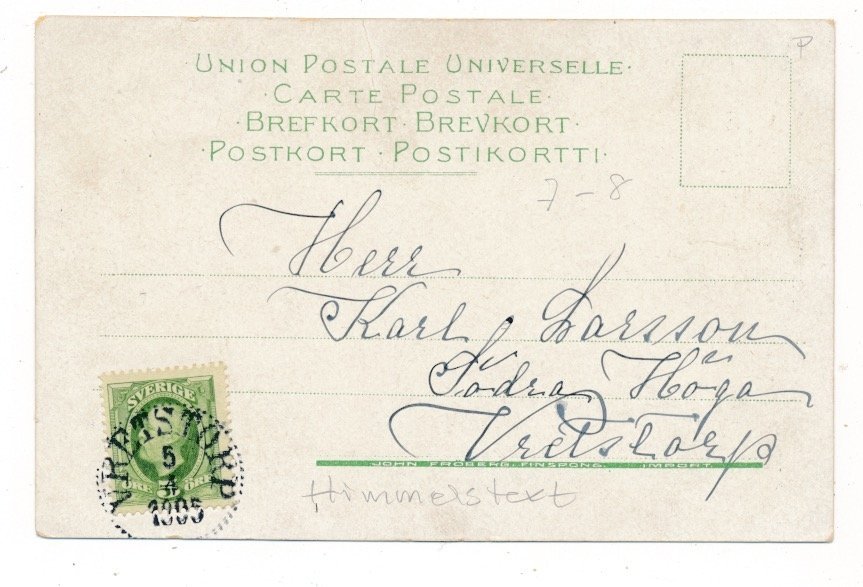 P
UNION POSTALE UNIVERSELLE·
·CARTE POSTALE·
·BREFKORT·BREVKORT·
·POSTKORT·POSTIKORTTI·
7-8
Herr
Karl Larsson
Södra Höga
Vretstorp
JOHN FRÖBERG, FINSPONG. IMPORT.
Himmelstext
SVERIGE
ÖRE 5 ÖRE
VRETSTORP
5
4
1905